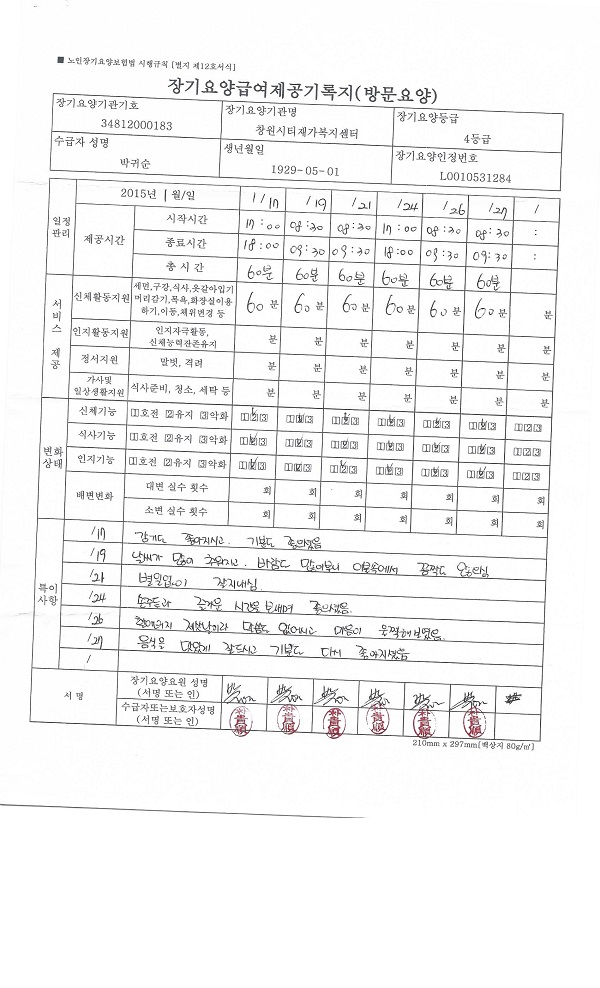 ■ 노인장기요양보험법 시행규칙 [별지 제12호서식]
장기요양급여제공기록지(방문요양)
장기요양기관기호 장기요양기관명 장기요양등급
34812000183 창원시티재가복지센터 4등급
수급자 성명 생년월일 장기요양인정번호
박귀순 1929-05-01 L0010531284
일정관리 2015년 1월/일 1/17 /19 /21 /24 /26 /27 /
제공시간 시작시간 17:00 08:30 08:30 17:00 08:30 08:30 :
종료시간 18:00 09:30 09:30 18:00 09:30 09:30 :
총 시 간 60분 60분 60분 60분 60분 60분
서비스 제공
신체활동지원 세면,구강,식사,옷갈아입기
머리감기,목욕,화장실이용
하기,이동,체위변경 등 60분 60분 60분 60분 60분 60분 분
인지활동지원 인지자극활동,
신체능력잔존유지 분 분 분 분 분 분 분
정서지원 말벗, 격려 분 분 분 분 분 분 분
가사및
일상생활지원 식사준비, 청소, 세탁 등 분 분 분 분 분 분 분
변화상태
신체기능 1호전 2유지 3악화 1 2 3 1 2 3 1 2 3 1 2 3 1 2 3 1 2 3 1 2 3
식사기능 1호전 2유지 3악화 1 2 3 1 2 3 1 2 3 1 2 3 1 2 3 1 2 3 1 2 3
인지기능 1호전 2유지 3악화 1 2 3 1 2 3 1 2 3 1 2 3 1 2 3 1 2 3 1 2 3
배변변화 대변 실수 횟수 회 회 회 회 회 회 회
소변 실수 횟수 회 회 회 회 회 회 회
특이사항
/17 감기도 좋아지시고. 기분도 좋으셨음
/19 날씨가 많이 추워지고. 바람도 많이부니 이불속에서 꼼짝도 안하심
/21 별일없이 잘지내심.
/24 손주들과 즐거운 시간을 보내며 좋으셨음.
/26 할아버지 제삿날이라 말씀도 없어시고 마음이 울적해보였음.
/27 음식을 맛있게 잘드시고 기분도 다시 좋아지셨음
/
서 명 장기요양요원 성명
(서명 또는 인)
수급자또는보호자성명
(서명 또는 인)
210mm x 297mm[백상지 80g/㎡]